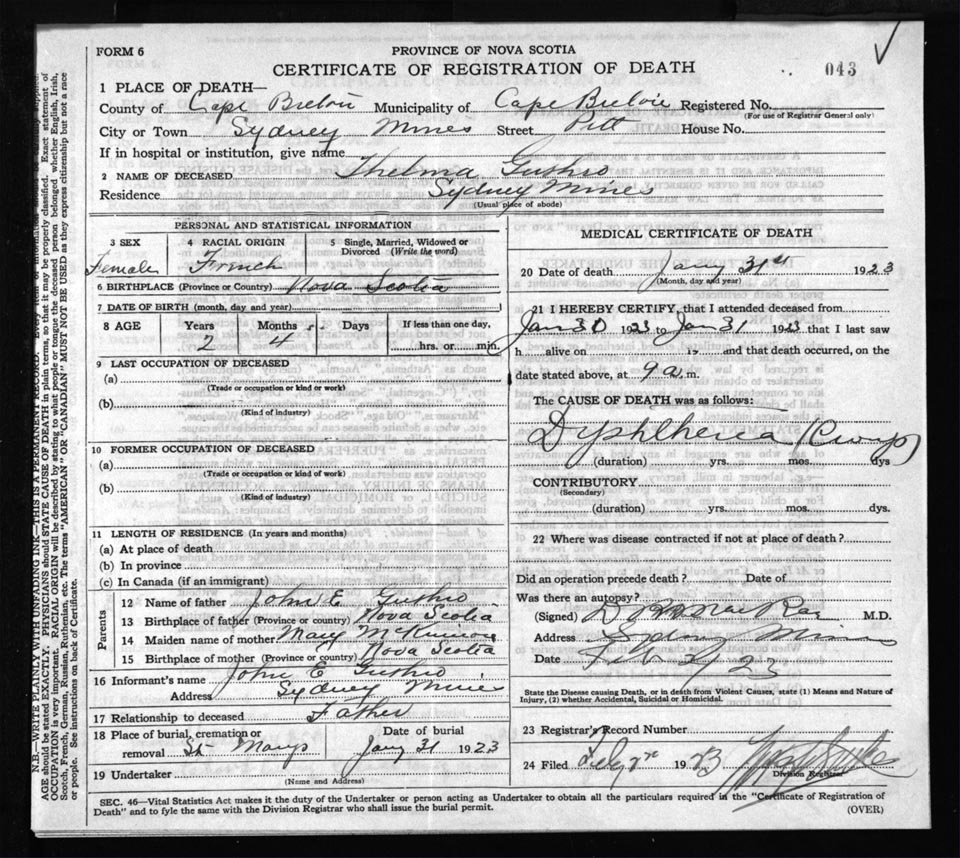 FORM 6
PROVINCE OF NOVA SCOTIA
CERTIFICATE OF REGISTRATION OF DEATH
043
1 PLACE OF DEATH—
County of Cape Breton Municipality of Cape Breton Registered No.
(For use of Registrar General only)
City or Town Sydney Mines Street Pitt House No.
If in hospital or institution, give name
2 NAME OF DECEASED Thelma Guthro
Residence Sydney Mines
(Usual place of abode)
PERSONAL AND STATISTICAL INFORMATION
3 SEX 4 RACIAL ORIGIN 5 Single, Married, Widowed or Divorced (Write the word)
Female French
6 BIRTHPLACE (Province or Country) Nova Scotia
7 DATE OF BIRTH (month, day and year)
8 AGE Years Months Days If less than one day,
2 4 hrs. or min.
9 LAST OCCUPATION OF DECEASED
(a)
(Trade or occupation or kind or work)
(b)
(Kind of industry)
10 FORMER OCCUPATION OF DECEASED
(a)
(Trade or occupation or kind of work)
(b)
(Kind of industry)
11 LENGTH OF RESIDENCE (In years and months)
(a) At place of death
(b) In province
(c) In Canada (if an immigrant)
Parents
12 Name of father John E Guthro
13 Birthplace of father (Province or country) Nova Scotia
14 Maiden name of mother Mary McKinnon
15 Birthplace of mother (Province or country) Nova Scotia
16 Informant's name John E Guthro
Address Sydney Mines
17 Relationship to deceased Father
18 Place of burial, cremation or removal St Marys Date of burial Jany 31 1923
19 Undertaker
(Name and Address)
MEDICAL CERTIFICATE OF DEATH
20 Date of death Jany 31st 1923
(Month, day and year)
21 I HEREBY CERTIFY, that I attended deceased from
Jan 30 1923 to Jan 31 1923 that I last saw
h alive on 19 and that death occurred, on the
date stated above, at 9 a. m.
The CAUSE OF DEATH was as follows:
Dyphtheria (Croup)
(duration) yrs. mos. dys
CONTRIBUTORY
(Secondary)
(duration) yrs. mos. dys.
22 Where was disease contracted if not at place of death?
Did an operation precede death? Date of
Was there an autopsy?
(Signed) MacRae M.D.
Address Sydney Mines
Date Feb 23
State the Disease causing Death, or in death from Violent Causes, state (1) Means and Nature of
Injury, (2) whether Accidental, Suicidal or Homicidal.
23 Registrar's Record Number
24 Filed 19
Division Registrar
SEC. 46—Vital Statistics Act makes it the duty of the Undertaker or person acting as Undertaker to obtain all the particulars required in the "Certificate of Registration of
Death" and to fyle the same with the Division Registrar who shall issue the burial permit.
(OVER)
N.B.—WRITE PLAINLY WITH UNFADING INK—THIS IS A PERMANENT RECORD.
AGE should be stated EXACTLY. PHYSICIANS should STATE CAUSE OF DEATH in plain terms, so that it may be properly classified. Exact statement of
OCCUPATION is very important. RACIAL ORIGIN will be described by stating to what people or tongue the deceased person belonged, whether English, Irish,
Scotch, French, German, Russian, Ruthenian, etc. The terms "AMERICAN" OR "CANADIAN" MUST NOT BE USED as they express citizenship but not a race
or people. See instructions on back of Certificate.